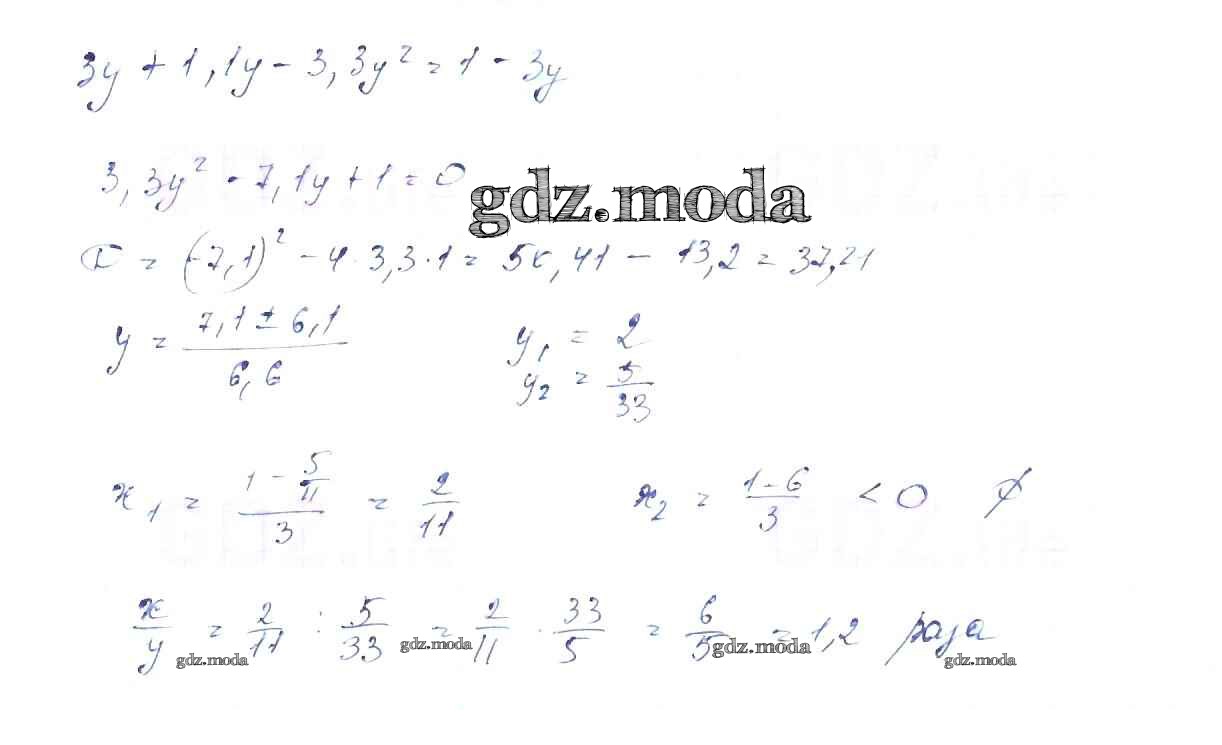 3y + 1,1y - 3,3y² = 1 - 3y
3,3y² - 7,1y + 1 = 0
gdz.moda
D = (-7,1)² - 4 · 3,3 · 1 = 50,41 - 13,2 = 37,21
y = (7,1 ± 6,1)/6,6 y₁ = 2
y₂ = 5/33
x₁ = (1 - 5/11)/3 = 2/11 x₂ = (1-6)/3 < 0 ∅
x/y = 2/11 : 5/33 = 2/11 · 33/5 = 6/5 = 1,2 раза
gdz.moda gdz.moda gdz.moda gdz.moda